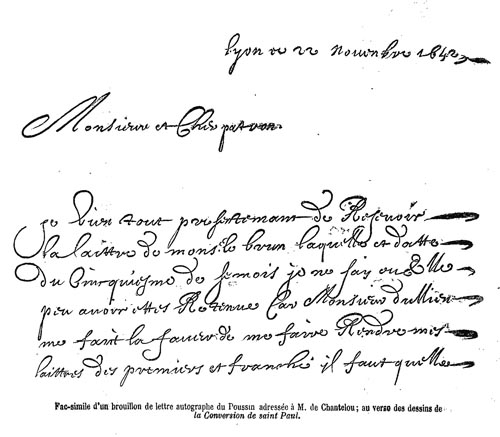 Lyon ce 22 Nouenbre 1642
Monsieur et Cher patron
je vien tout presentemant de Resevoir
la laittre de mons.r le brun laquelle et datte
du Cincquiesme de se mois je ne say ou elle
peu auoir ettes Retenue Car Monsieur du Lieu
me fait la faueur de me faire Rendre mes
laittres des premiers et franche il faut quelle
Fac-simile d'un brouillon de lettre autographe du Poussin adressée à M. de Chantelou; au verso des dessins de
la Conversion de saint Paul.